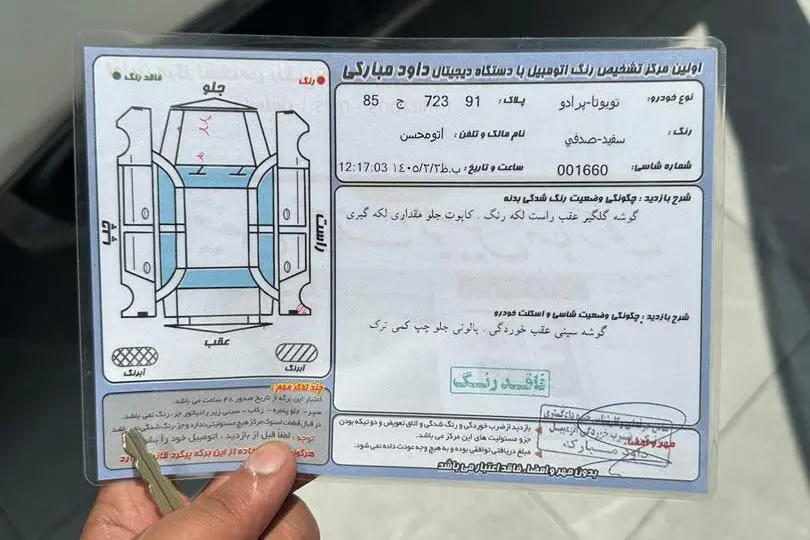 اولین مرکز تشخیص رنگ اتومبیل با دستگاه دیجیتال داود مبارکی
نوع خودرو: تویوتا-پرادو پلاک: 91 723 ج 85
رنگ: سفید-صدفي نام مالک و تلفن: اتومحسن
شماره شاسی: 001660 ساعت و تاریخ: ب.ظ ۱٤۰۵/۲/۲ 12:17:03
شرح بازدید: چگونگی وضعیت رنگ شدگی بدنه
گوشه گلگیر عقب راست لکه رنگ . کاپوت جلو مقداری لکه گیری
شرح بازدید: چگونگی وضعیت شاسی و اسکلت خودرو
گوشه سینی عقب خوردگی . پالونی جلو چپ کمی ترک
فاقد رنگ
رنگ
فاقد رنگ
جلو
راست
چپ
عقب
آبرنگ
آبرنگ
چند تذکر مهم:
اعتبار این برگه از تاریخ صدور ۴۸ ساعت می باشد.
سپر - جلو پنجره - رکاب - سینی زیر رادیاتور جزء رنگ نمی باشد.
در قبال قطعات استوک مرکز هیچ مسئولیتی ندارد و جزء رنگ شدگی
توجه: لطفاً قبل از بازدید، اتومبیل خود را
از این برگه پیگرد
بازدید ضرب خوردگی و رنگ شدگی و اتاق تعویض و دو تیکه بودن
جزو مسئولیت های این مرکز می باشد.
مبلغ دریافتی توافقی بوده و به هیچ وجه عودت داده نمی شود.
مهر و امضاء:
داود مبارکه
بدون مهر و امضاء فاقد اعتبار می باشد